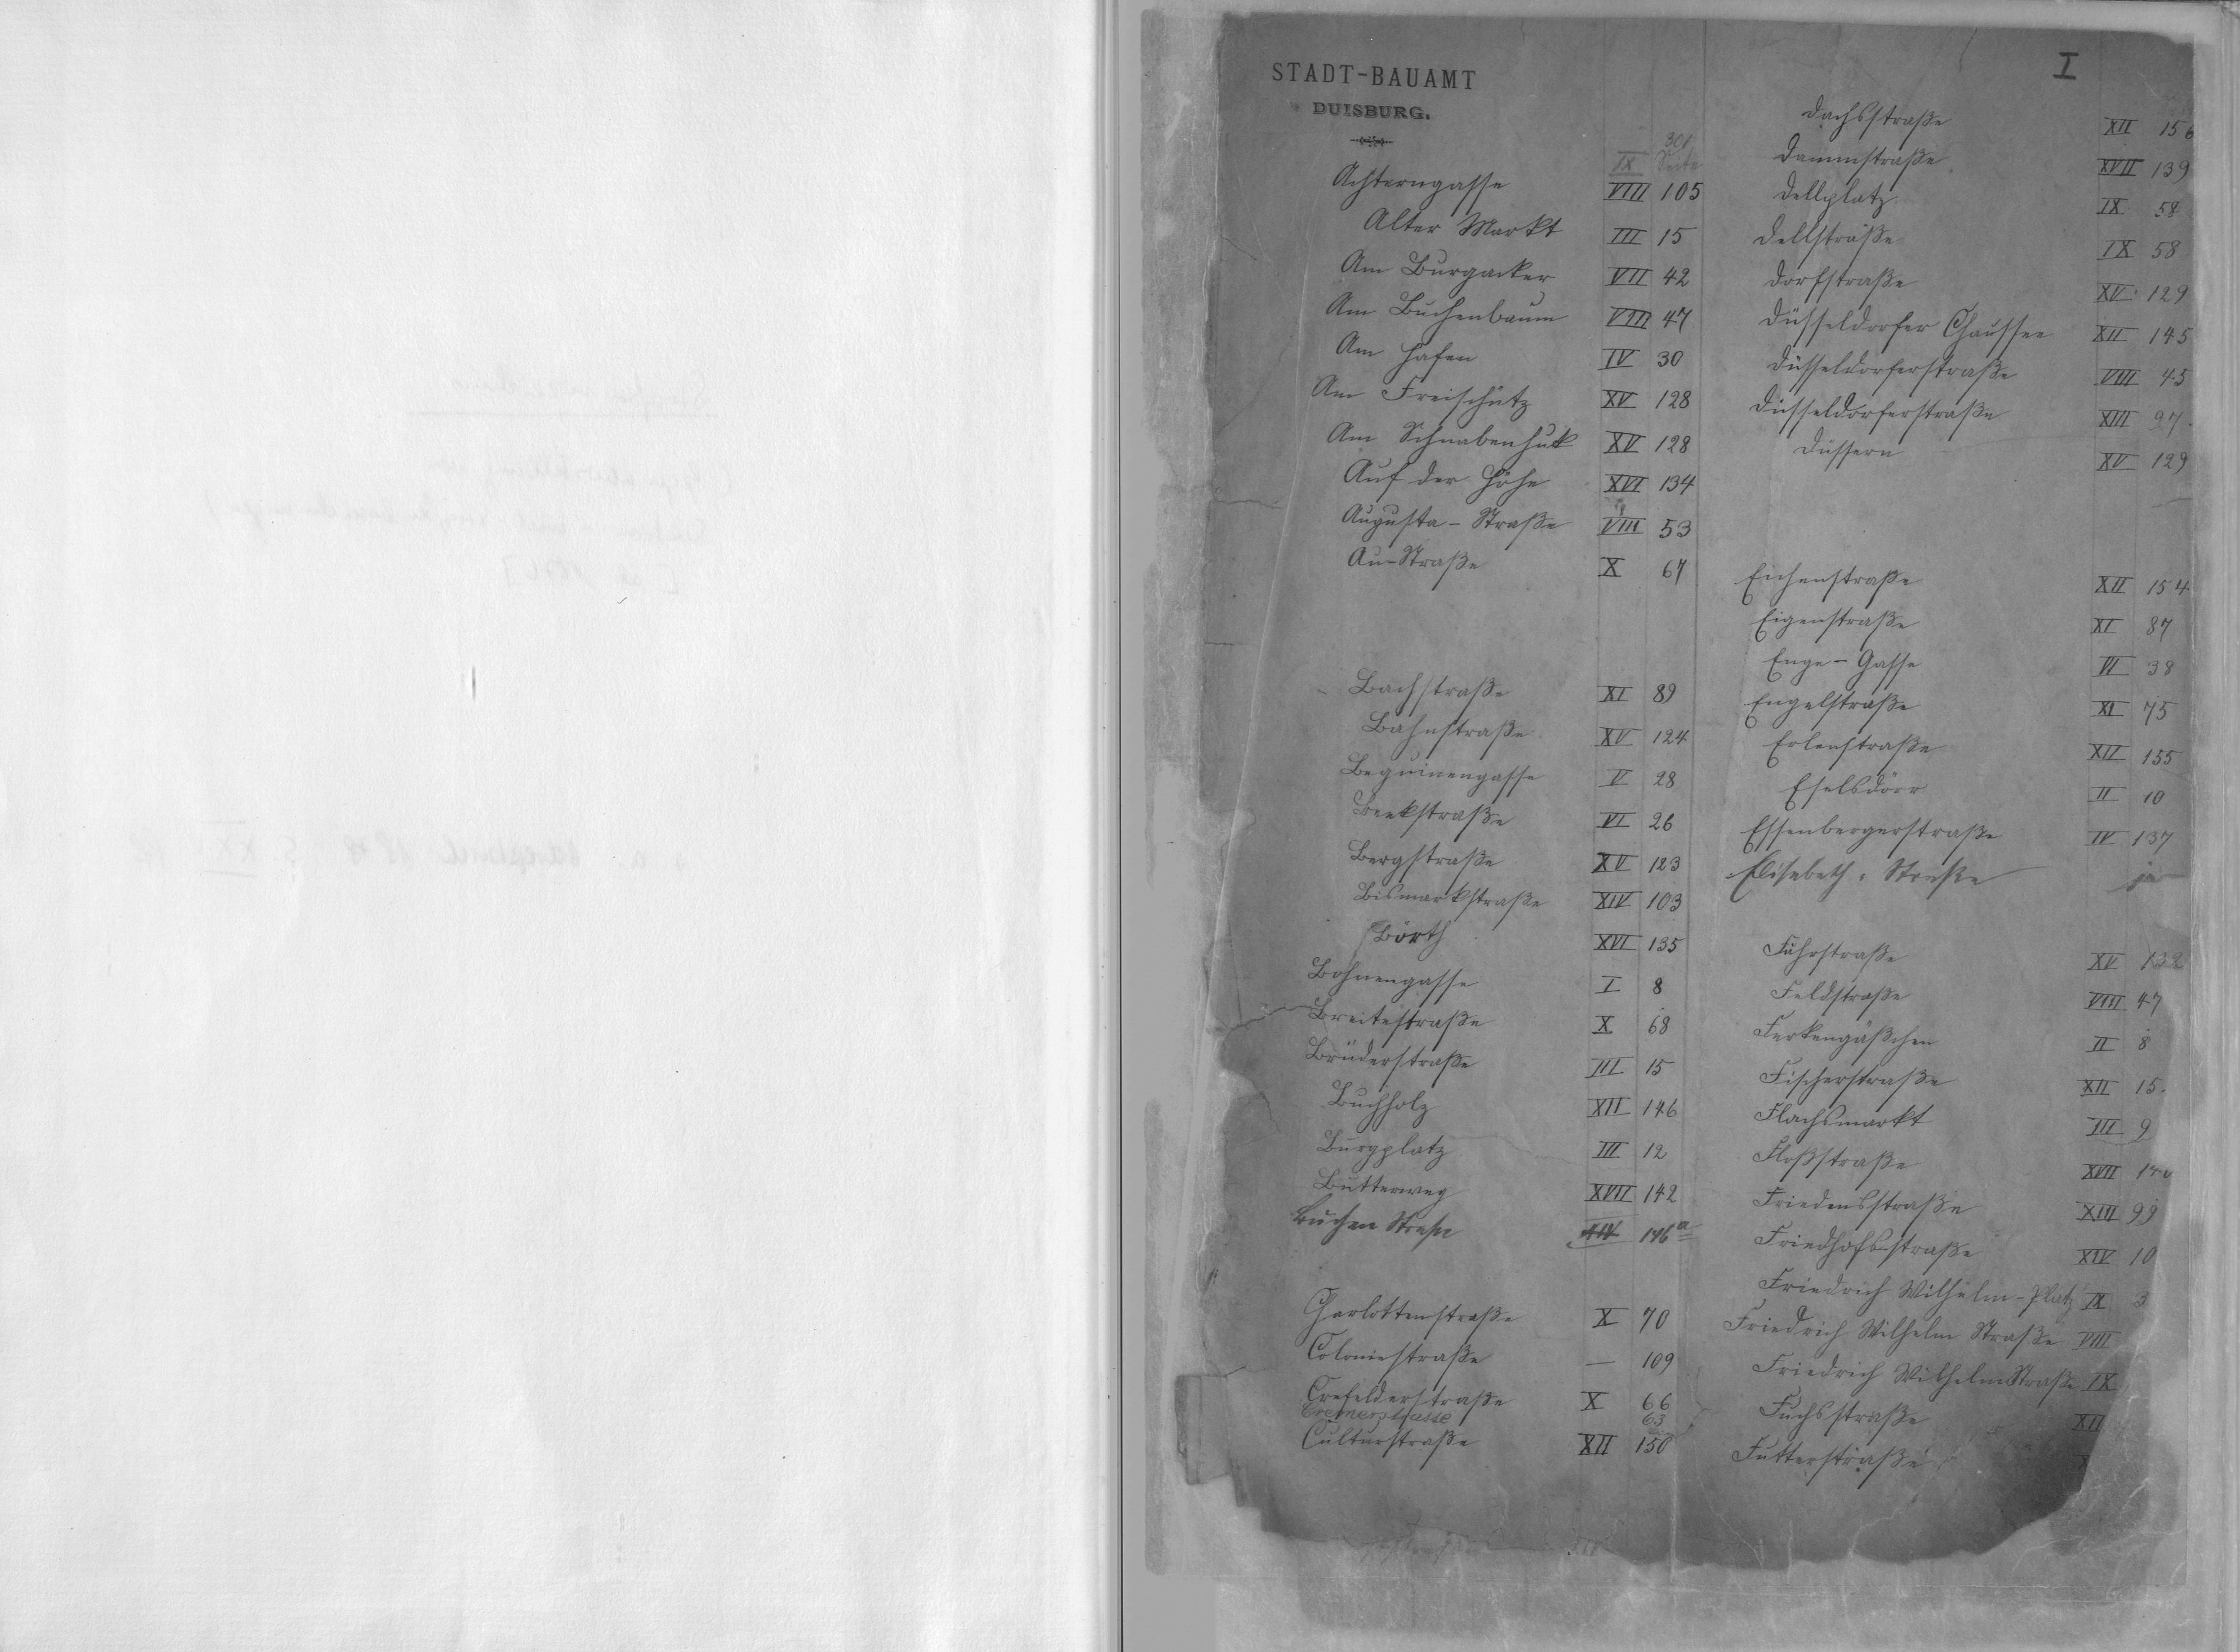 I
STADT-BAUAMT
DUISBURG.
301
IX Seite
Achterngasse VIII 105
Alter Markt III 15
Am Burgacker VII 42
Am Buchenbaum VIII 47
Am Hafen IV 30
Am Freischütz XV 128
Am Schnabenhuk XV 128
Auf der Höhe XVI 134
Augusta-Straße VIII 53
Au-Straße X 67
Bachstraße XI 89
Bahnstraße XV 124
Beguinengasse V 28
Beekstraße VI 26
Bergstraße XV 123
Bismarkstraße XIV 103
Börth XVI 135
Bohnengasse I 8
Breitestraße X 68
Brüderstraße III 15
Buchholz XII 146
Burgplatz III 12
Butterweg XVII 142
Buchen Straße XIV 146a
Charlottenstraße X 70
Coloniestraße — 109
Crefelderstraße X 66
Cremerstrasse 63
Culturstraße XII 150
Dachsstraße XII 156
Dammstraße XVII 139
Dellplatz IX 58
Dellstraße IX 58
Dorfstraße XV 129
Düsseldorfer Chaussee XII 145
Düsseldorferstraße VIII 45
Düsseldorferstraße XIII 97
Düssern XV 129
Eichenstraße XII 154
Eigenstraße XI 87
Enge-Gasse VI 38
Engelstraße XI 75
Erlenstraße XII 155
Eselsdörr II 10
Essenbergerstraße IV 137
Elisabeth-Straße
Fährstraße XV 132
Feldstraße VIII 47
Ferkengäßchen II 8
Fischerstraße XII 15
Flachsmarkt III 9
Floßstraße XVII
Friedensstraße XIII 99
Friedhofsstraße XIV 10
Friedrich Wilhelm-Platz IX 3
Friedrich Wilhelm Straße VIII
Friedrich Wilhelm Straße IX
Fuchsstraße XII
Futterstraße